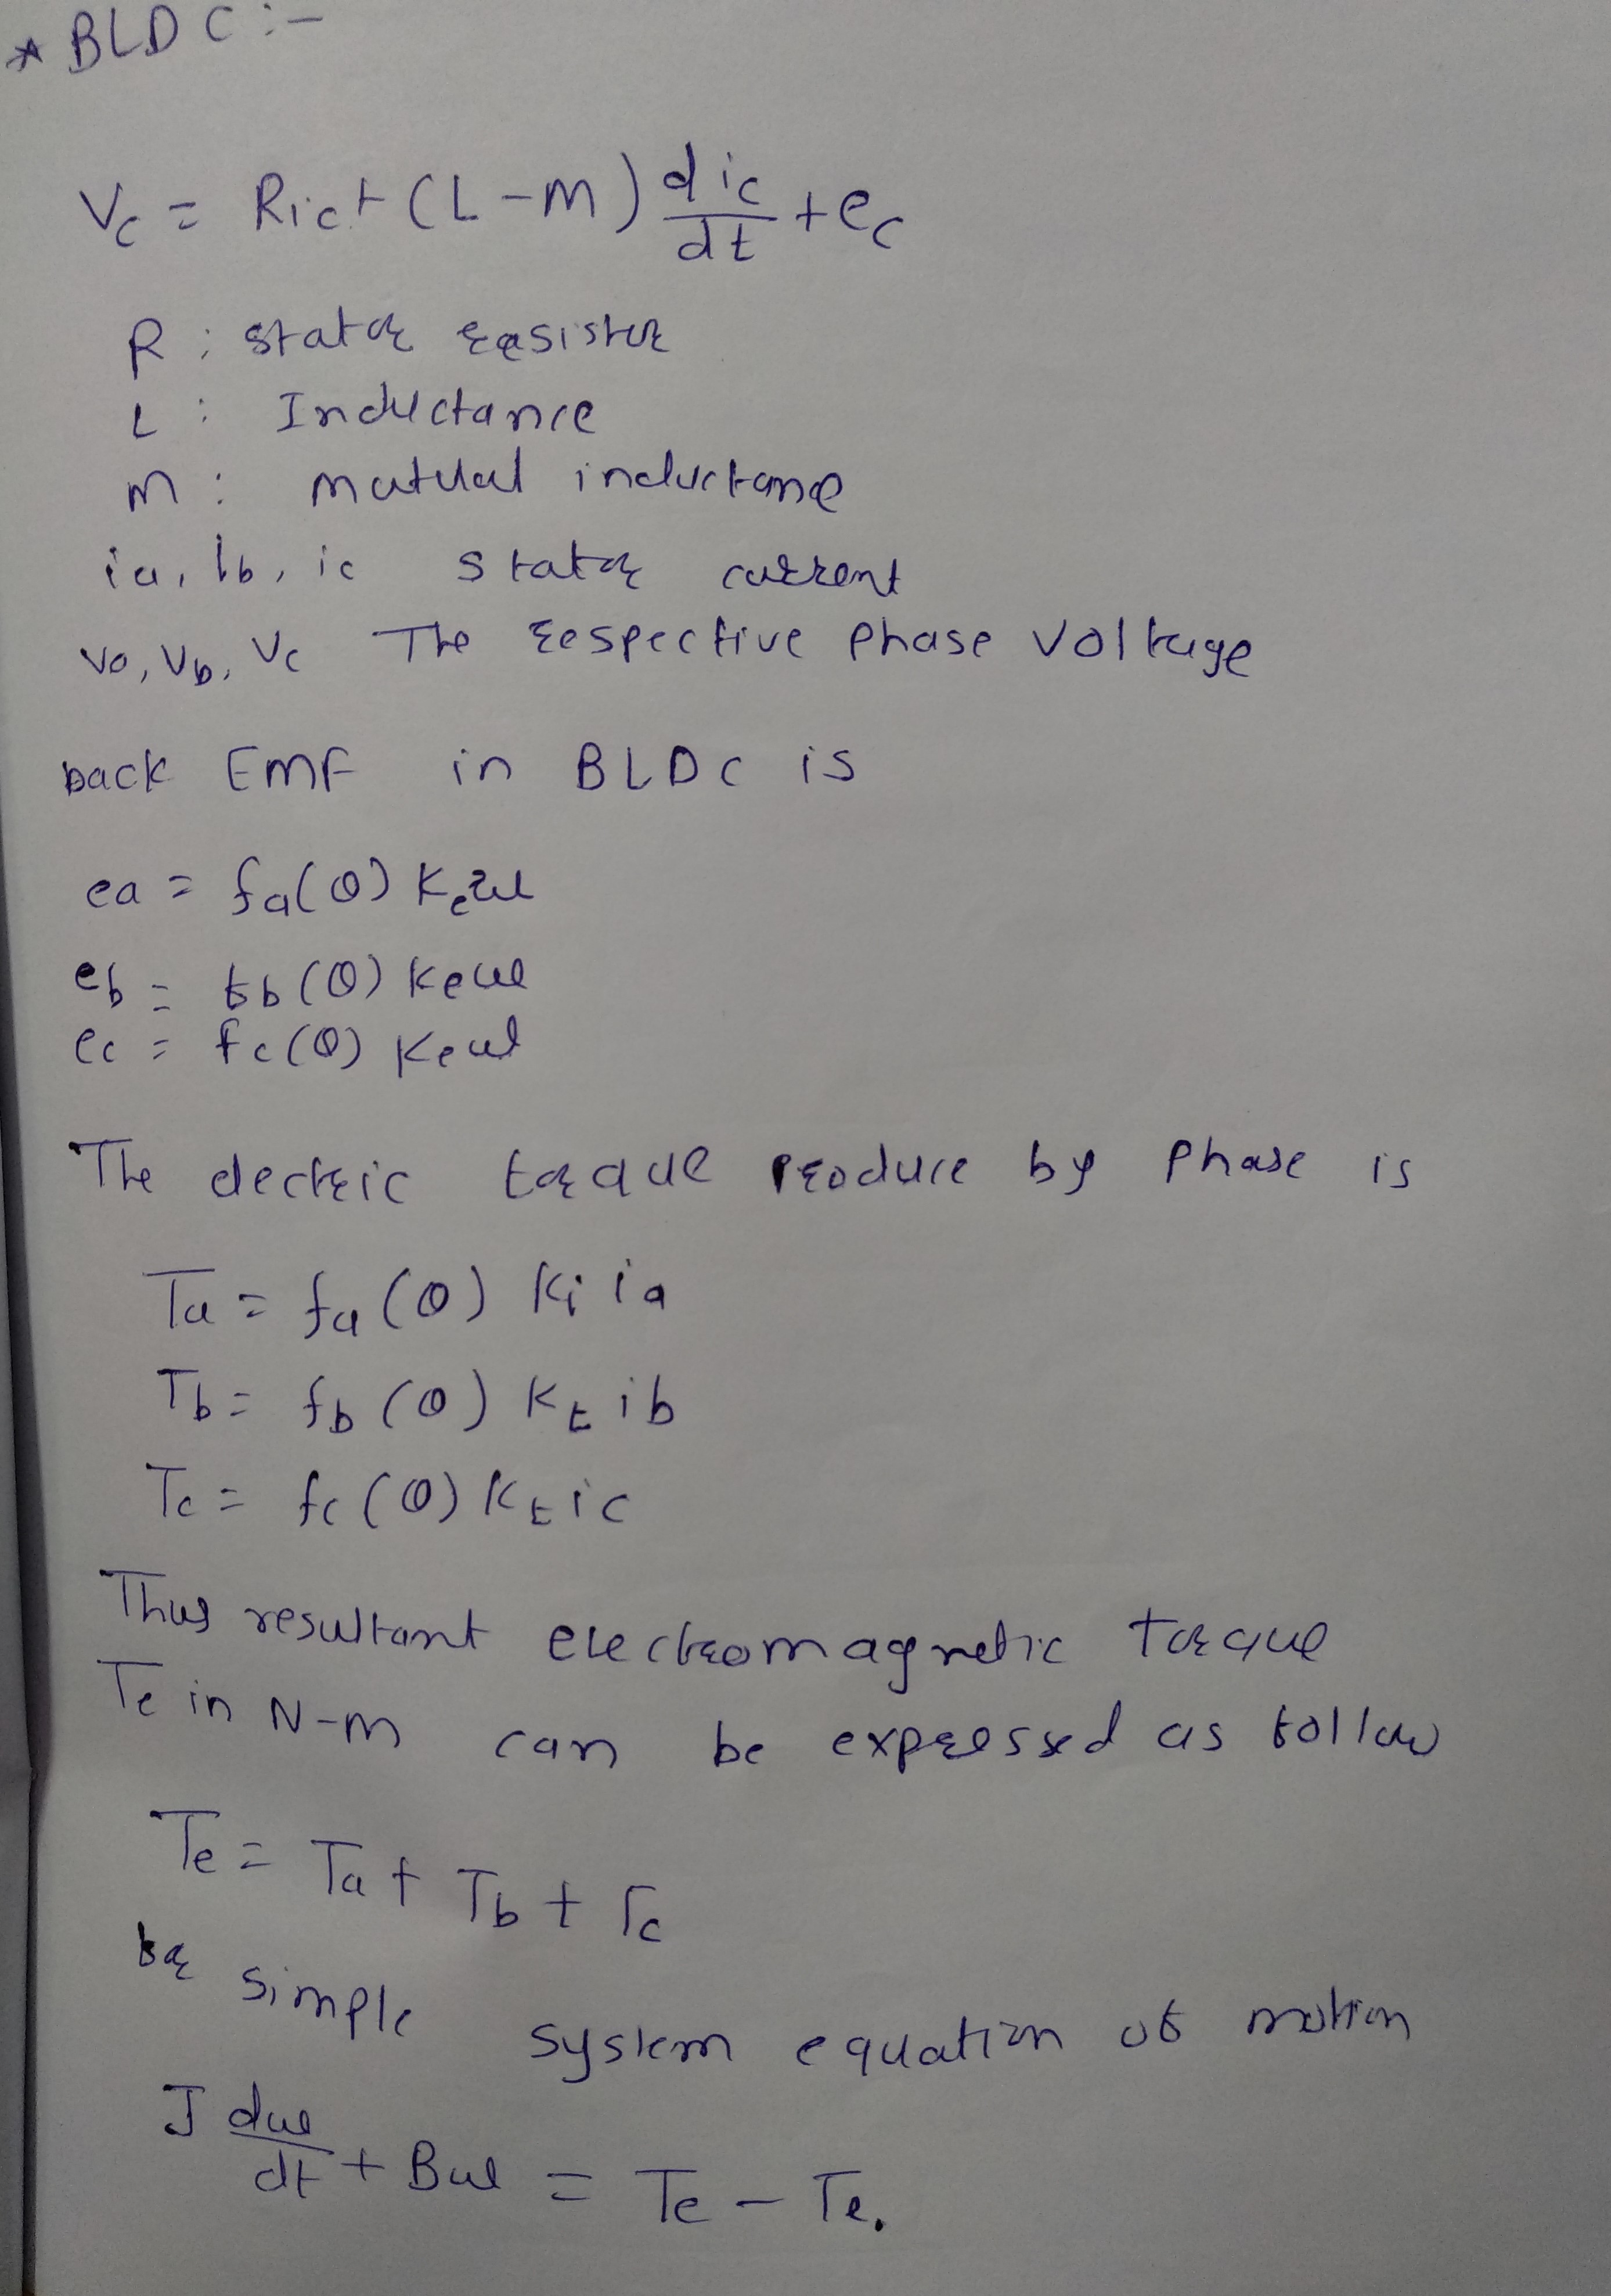 * BLDC :-
Vc = Ric + (L-M) dic/dt + ec
R : stator resistor
L : Inductance
M : mutual inductance
ia, ib, ic stator current
va, Vb, Vc The respective phase voltage
back EMF in BLDC is
ea = fa(θ) Keω
eb = fb(θ) Keω
ec = fc(θ) Keω
The electric torque produce by phase is
Ta = fa(θ) Kt ia
Tb = fb(θ) Kt ib
Tc = fc(θ) Kt ic
Thus resultant electromagnetic torque
Te in N-m can be expressed as follow
Te = Ta + Tb + Tc
for simple system equation of motion
J dω/dt + Bω = Te - Te.